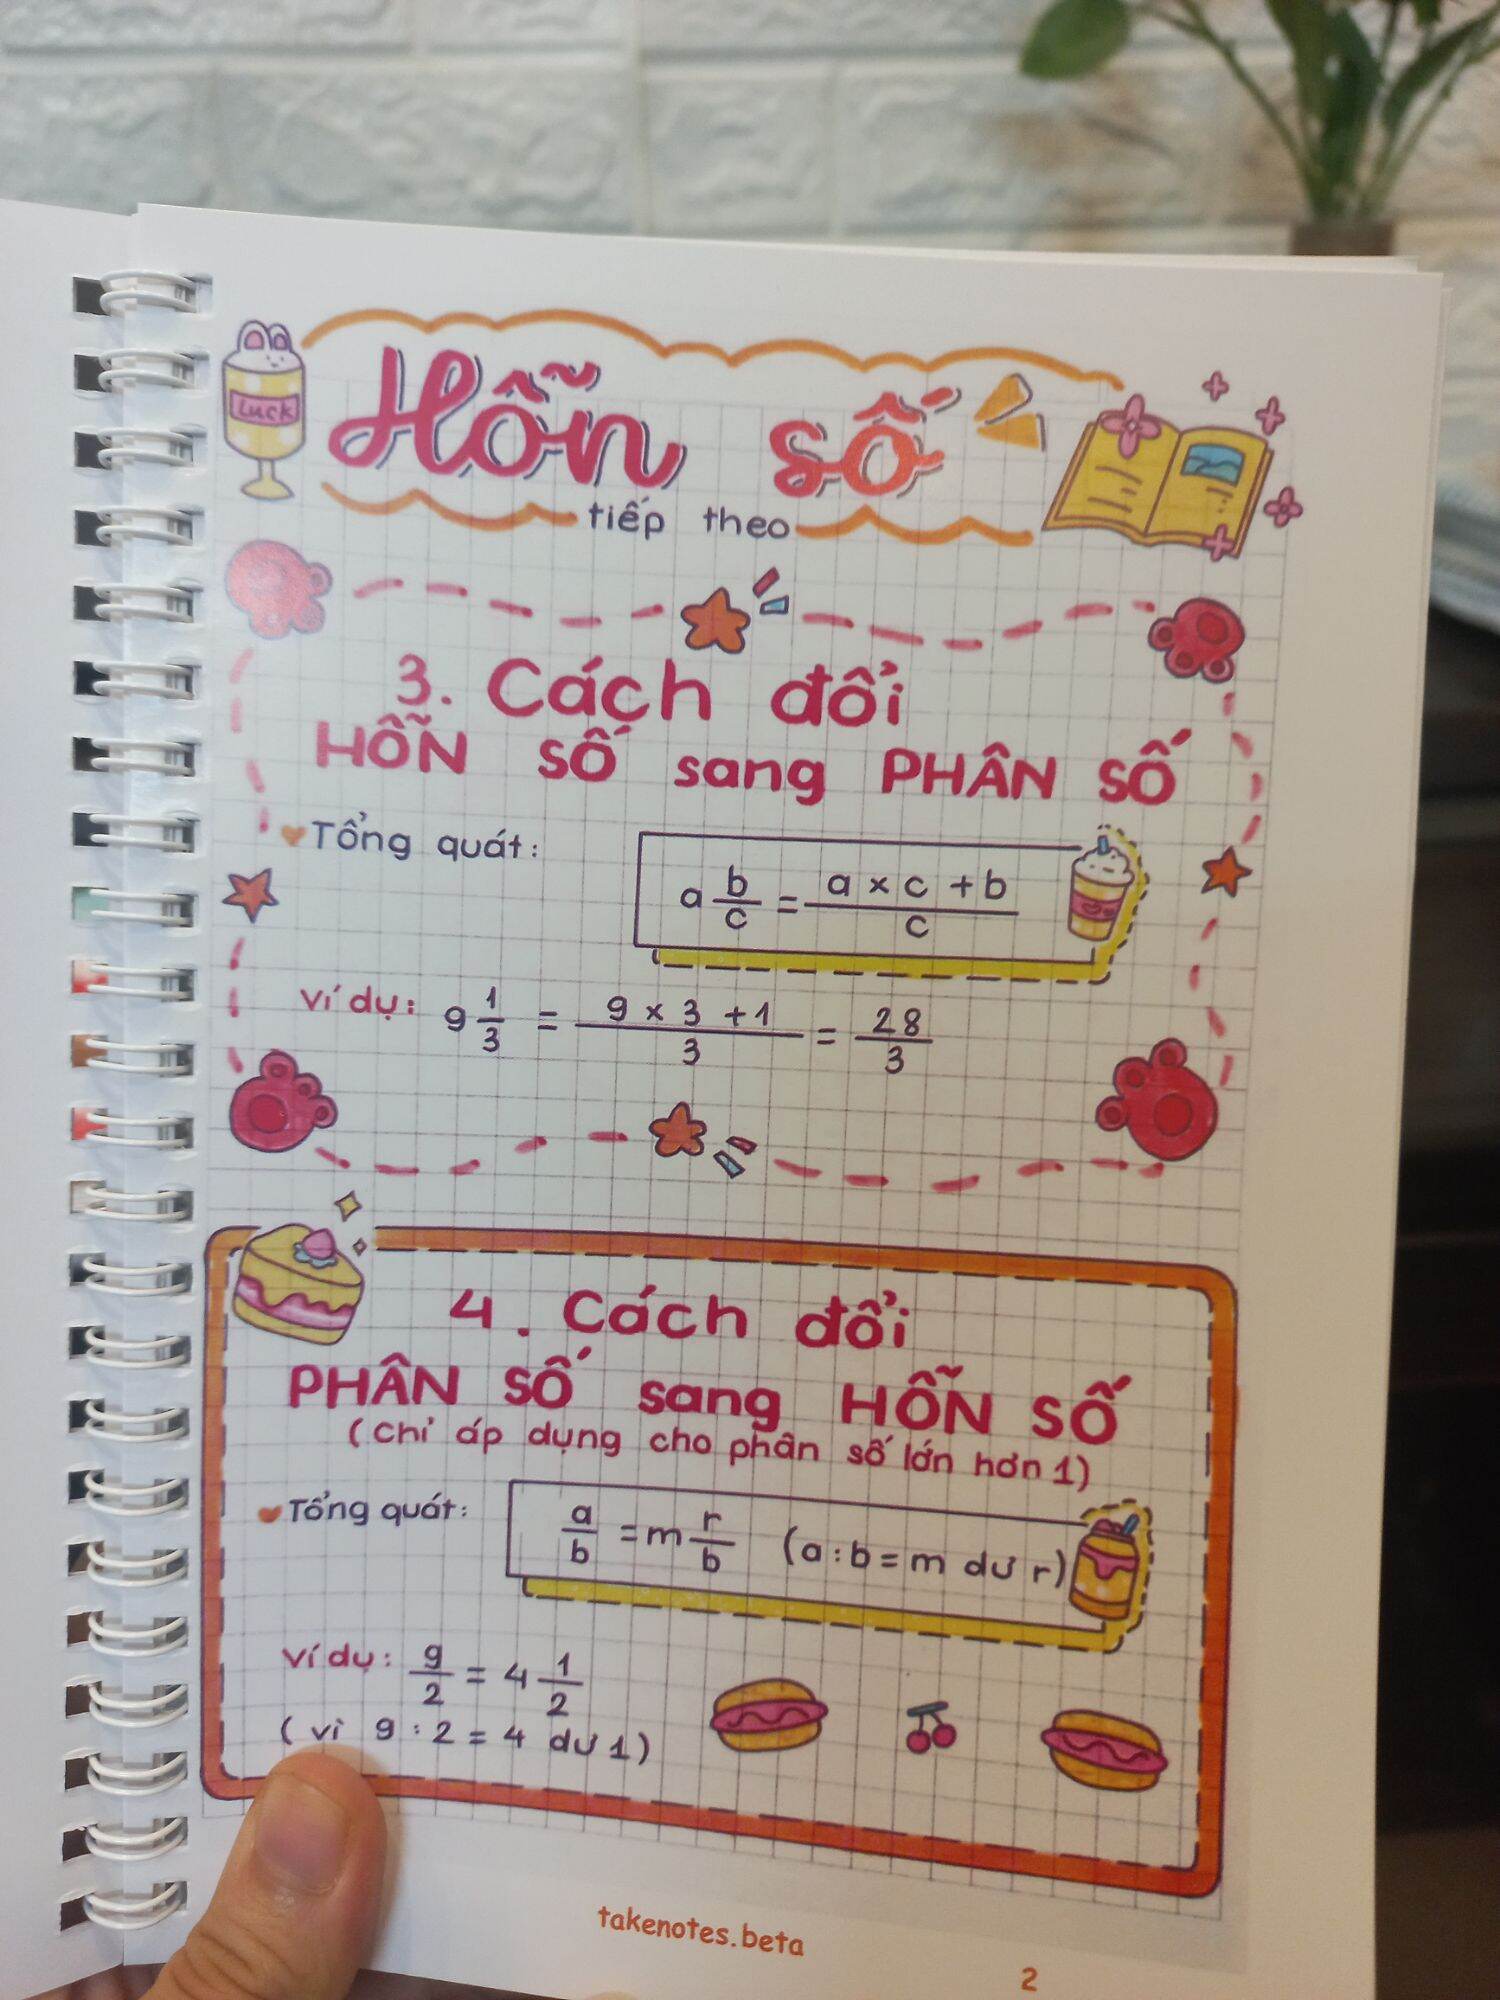 Luck
Hỗn số
tiếp theo
3. Cách đổi
HỖN SỐ sang PHÂN SỐ
Tổng quát:
a b/c = (a × c + b)/c
Ví dụ: 9 1/3 = (9 × 3 + 1)/3 = 28/3
4. Cách đổi
PHÂN SỐ sang HỖN SỐ
(Chỉ áp dụng cho phân số lớn hơn 1)
Tổng quát:
a/b = m r/b (a : b = m dư r)
Ví dụ: 9/2 = 4 1/2
(vì 9 : 2 = 4 dư 1)
takenotes.beta
2